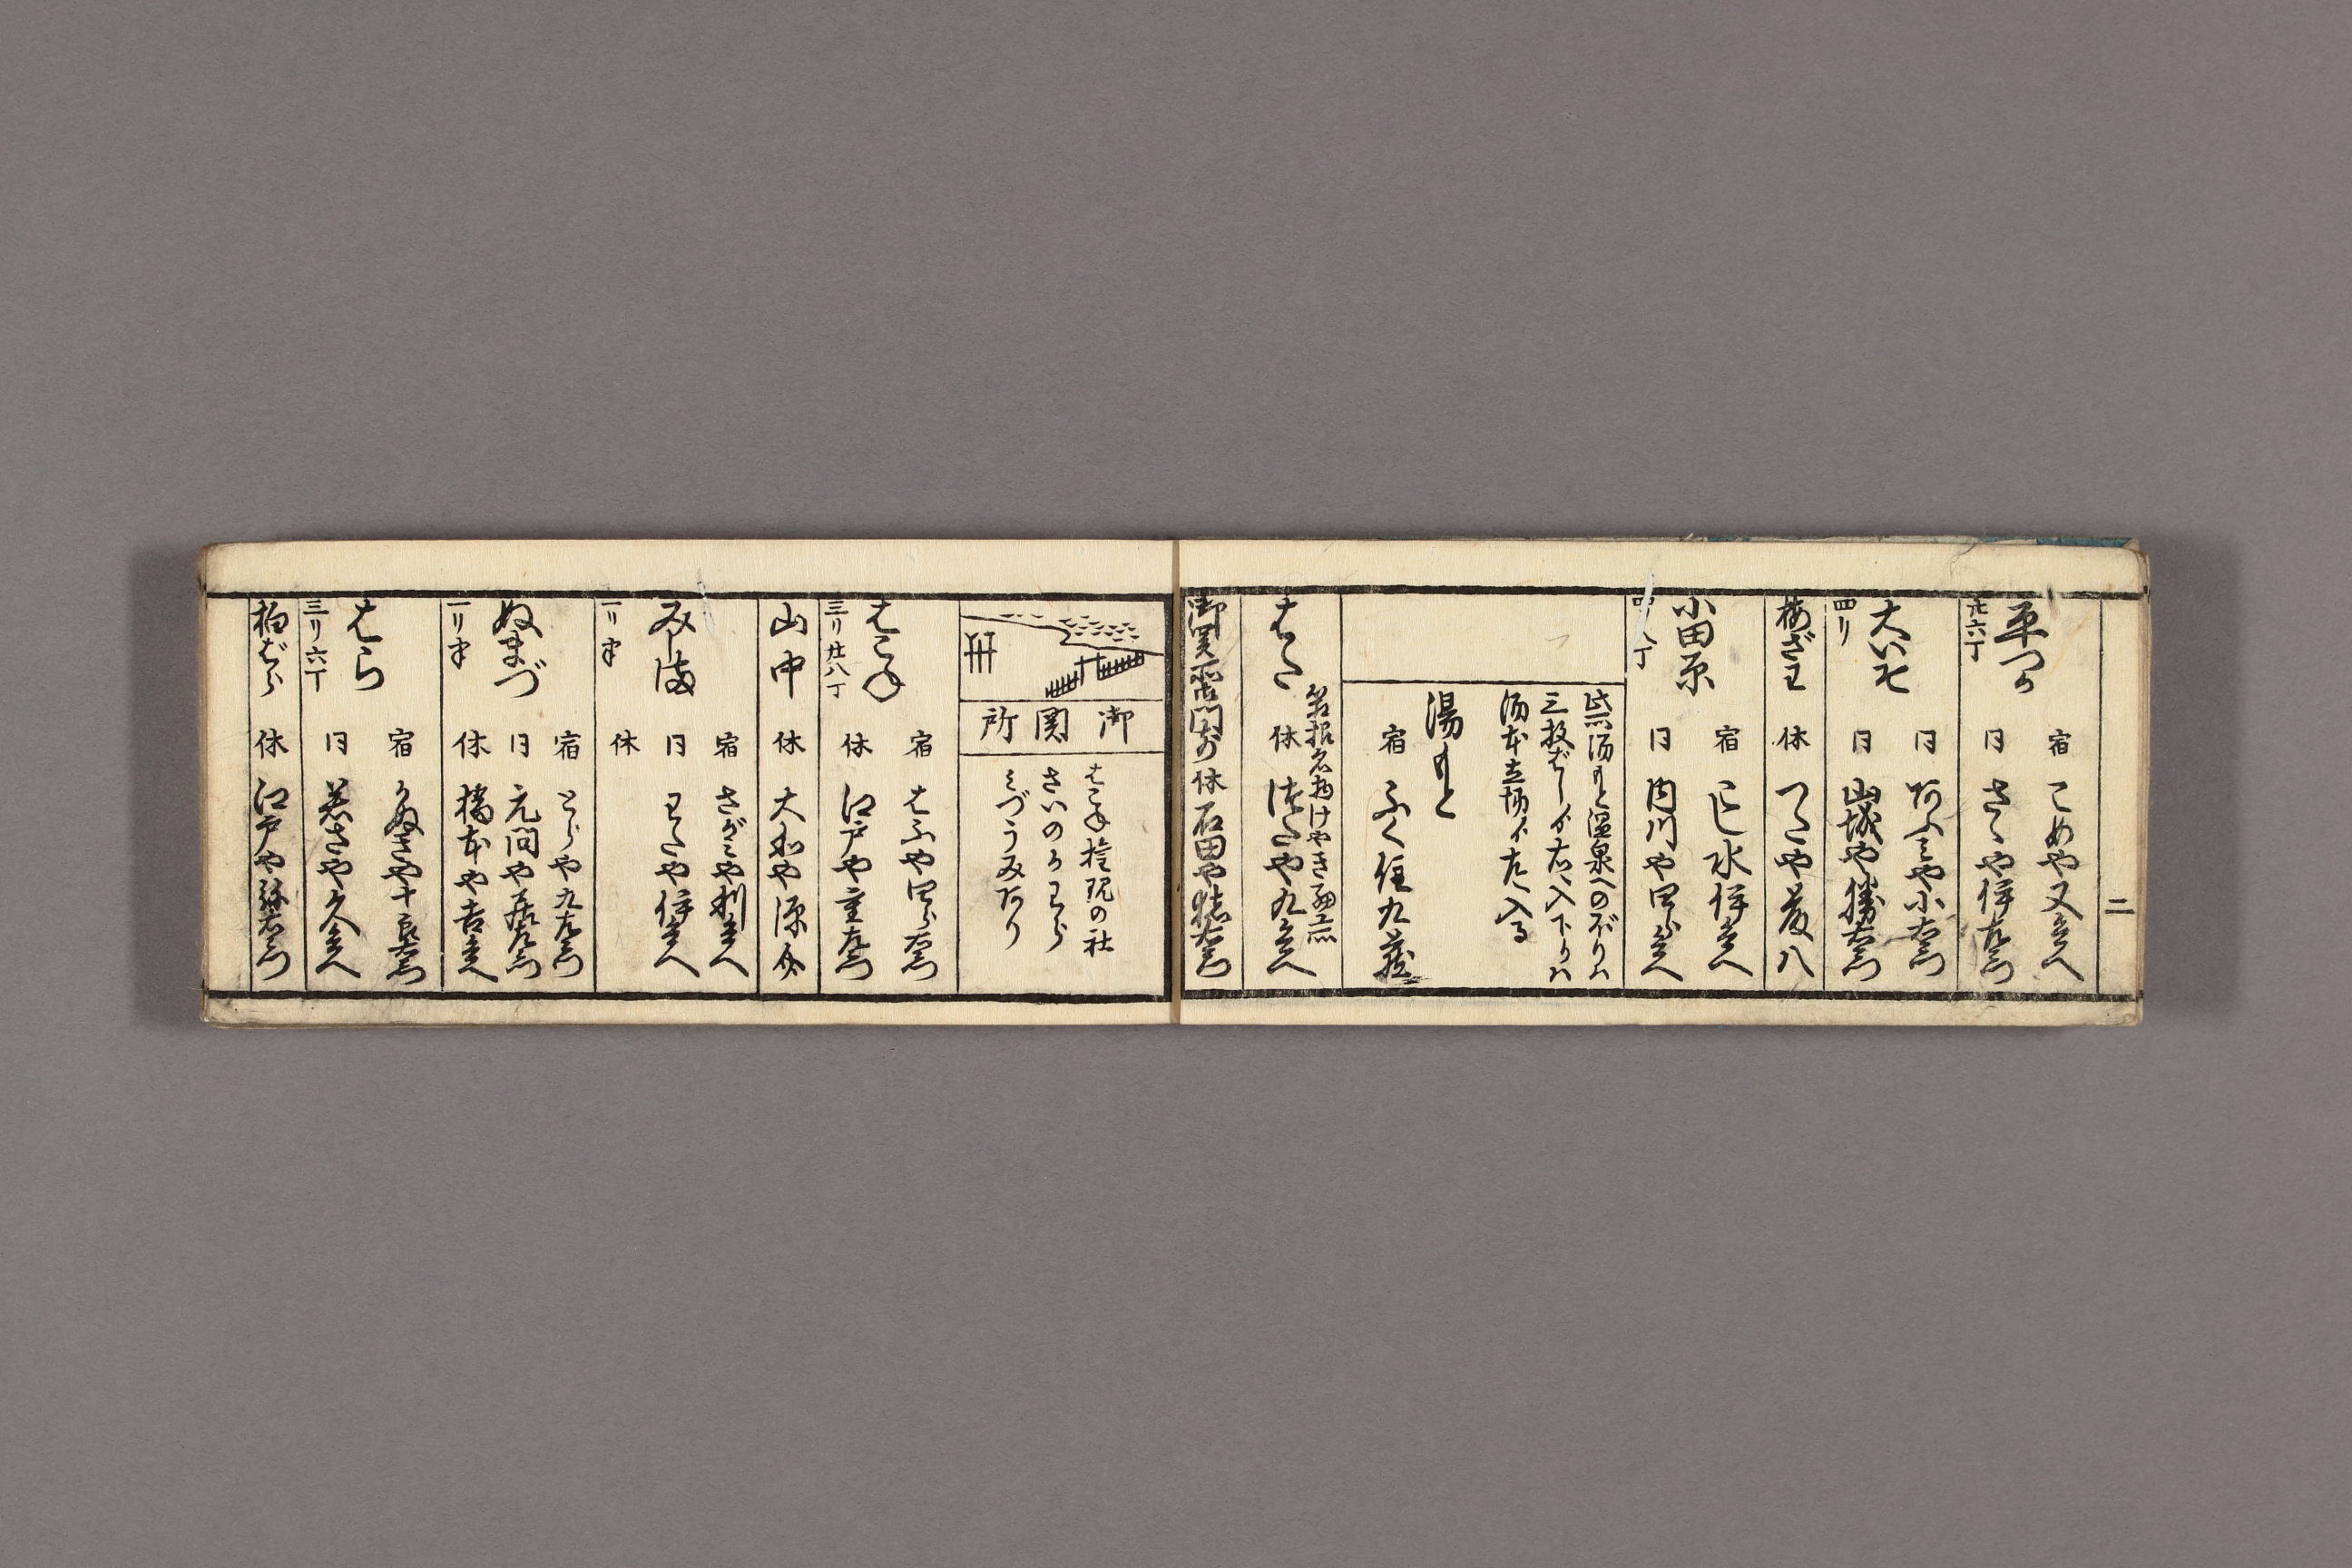 二
平つか
廿六丁
宿 こめや又兵へ
同 さゝや伊左衛門
大いそ
四り
同 かふミや小右衛門
同 山城や勝右衛門
梅ざわ
休 つたや友八
小田原
四り 丁
宿 こし水伊兵へ
同 内川や四郎兵へ
此所湯もと温泉へのぼりハ
三枚ばしゟ右へ入下りハ
湯本立場ゟ左へ入る
湯もと
宿 ふく住九蔵
はた
名物けやき細工品
休 つたや九兵へ
御関所前
休 石田や右衛門
御関所
はこね権現の社
さいのかわら
ミづうみあり
はこね
三リ廿八丁
宿 はふや四郎右衛門
休 江戸や重左衛門
山中
休 大和や源介
みしま
一リ半
宿 さがミや利兵へ
同 わたや伊兵へ
休
ぬまづ
一リ半
宿 とらや九左衛門
同 元問や左衛門
休 橋本や吉兵へ
はら
三リ六丁
宿 かぬきや十郎右衛門
同 若さや久兵へ
柏ばら
休 江戸や弥右衛門